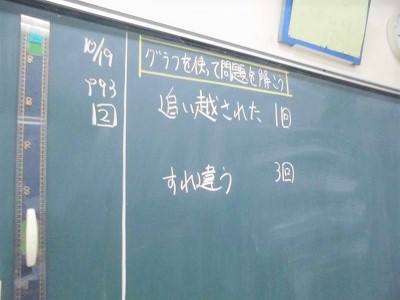 10/19
P93
2
グラフを使って問題を解こう
追い越された 1回
すれ違う 3回